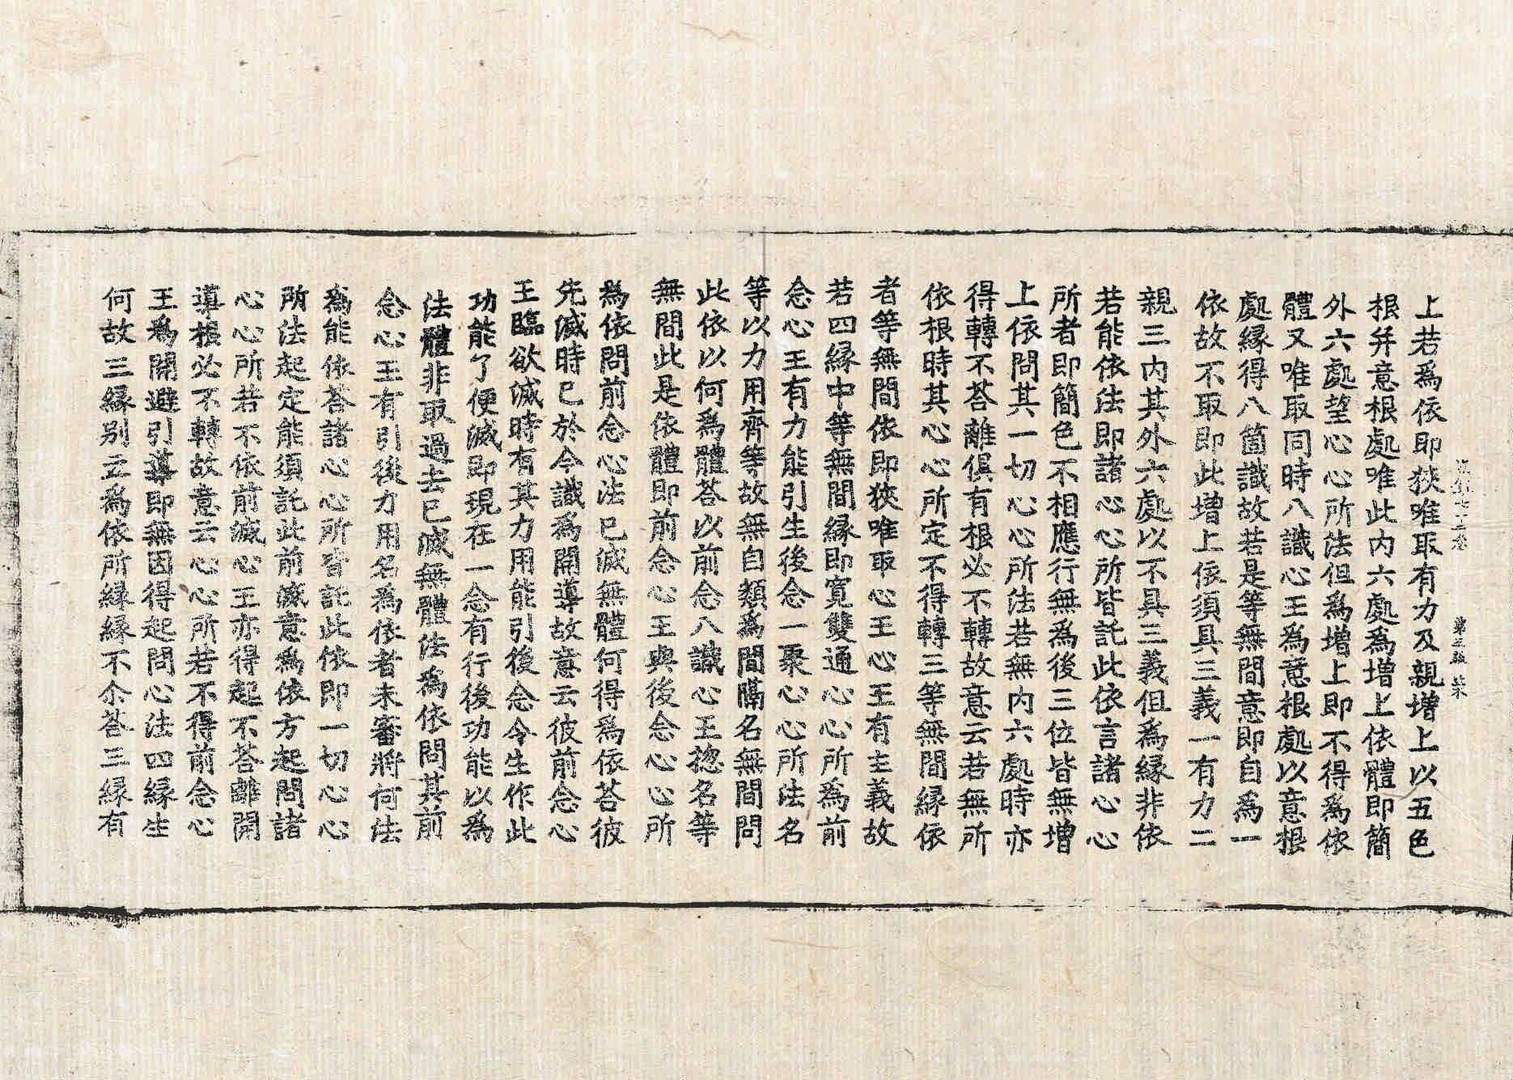 上若爲依即狹唯取有力及親增上以五色
根并意根處唯此內六處爲增上依體即簡
外六處望心心所法但爲增上即不得爲依
體又唯取同時八識心王爲意根處以意根
處緣得八箇識故若是等無間意即自爲一
依故不取即此增上依須具三義一有力二
親三內其外六處以不具三義但爲緣非依
若能依法即諸心心所皆託此依言諸心心
所者即簡色不相應行無爲後三位皆無增
上依問其一切心心所法若無內六處時亦
得轉不荅離俱有根必不轉故意云若無所
依根時其心心所定不得轉三等無間緣依
者等無間依即狹唯取心王心王有主義故
若四緣中等無間緣即寬雙通心心所爲前
念心王有力能引生後念一聚心心所法名
等以力用齊等故無自類爲間隔名無間問
此依以何爲體荅以前念八識心王揔名等
無間此是依體即前念心王與後念心心所
爲依問前念心法已滅無體何得爲依荅彼
先滅時已於今識爲開導故意云彼前念心
王臨欲滅時有其力用能引後念令生作此
功能了便滅即現在一念有行後功能以爲
法體非取過去已滅無體法爲依問其前
念心王有引後力用名爲依者未審將何法
爲能依荅諸心心所皆託此依即一切心心
所法起定能須託此前滅意爲依方起問諸
心心所若不依前滅心王亦得起不荅離開
導根必不轉故意云心心所若不得前念心
王爲開避引導即無因得起問心法四緣生
何故三緣別立爲依所緣緣不尒荅三緣有